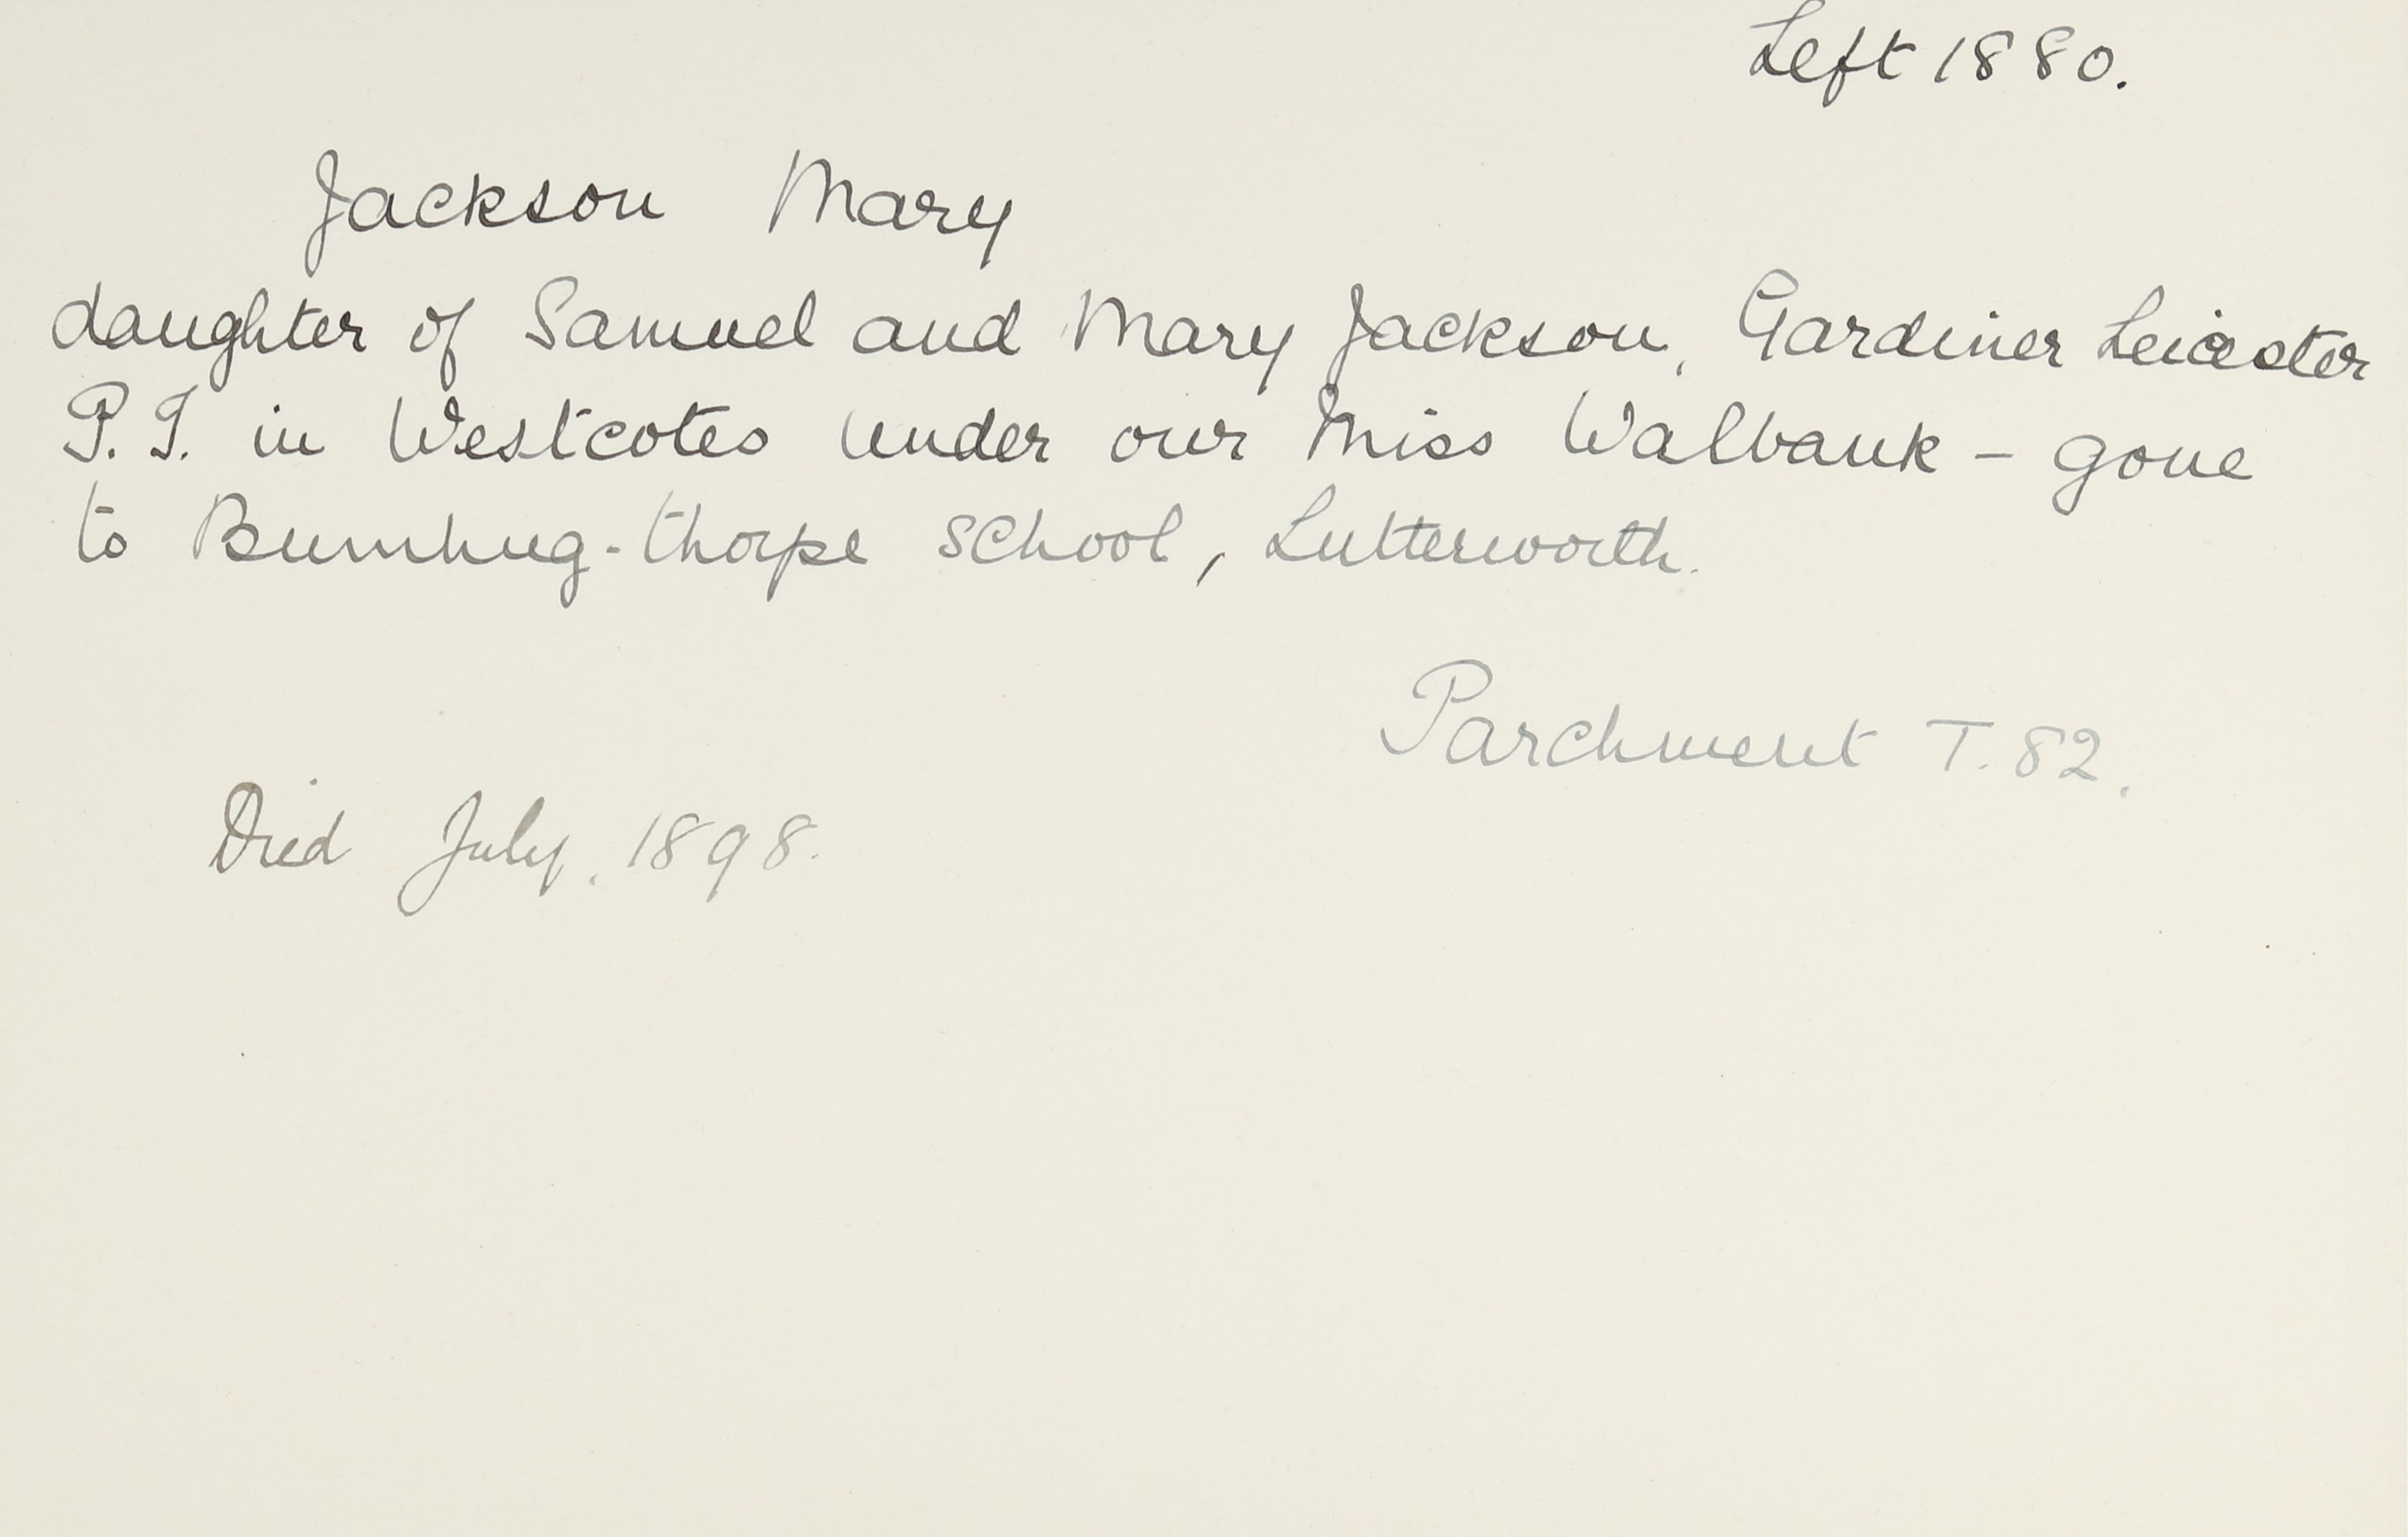 Left 1880.
Jackson Mary
daughter of Samuel and Mary Jackson, Gardiner Leicester
P.T. in Westcotes under our Miss Walbank - gone
to -thorpe School, Lutterworth.
Parchment T. 82.
Died July. 1898.